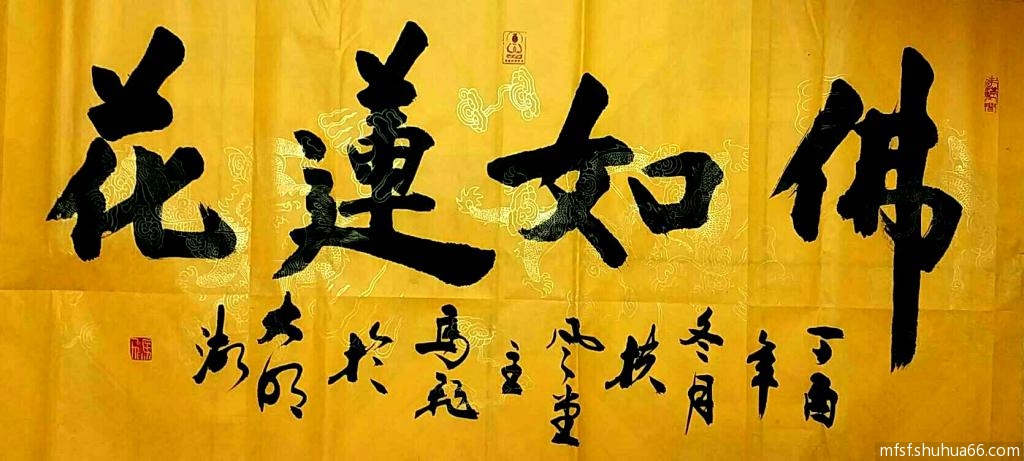 佛如蓮花
丁酉年冬月扶风堂主馬飛於大明湖
mfsf.shuhua66.com